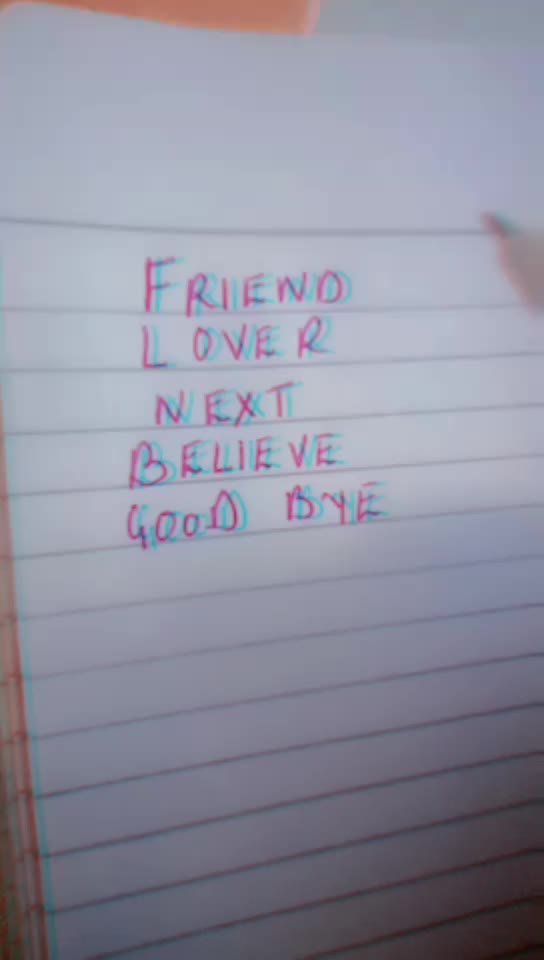 FRIEND
LOVER
NEXT
BELIEVE
GOOD BYE